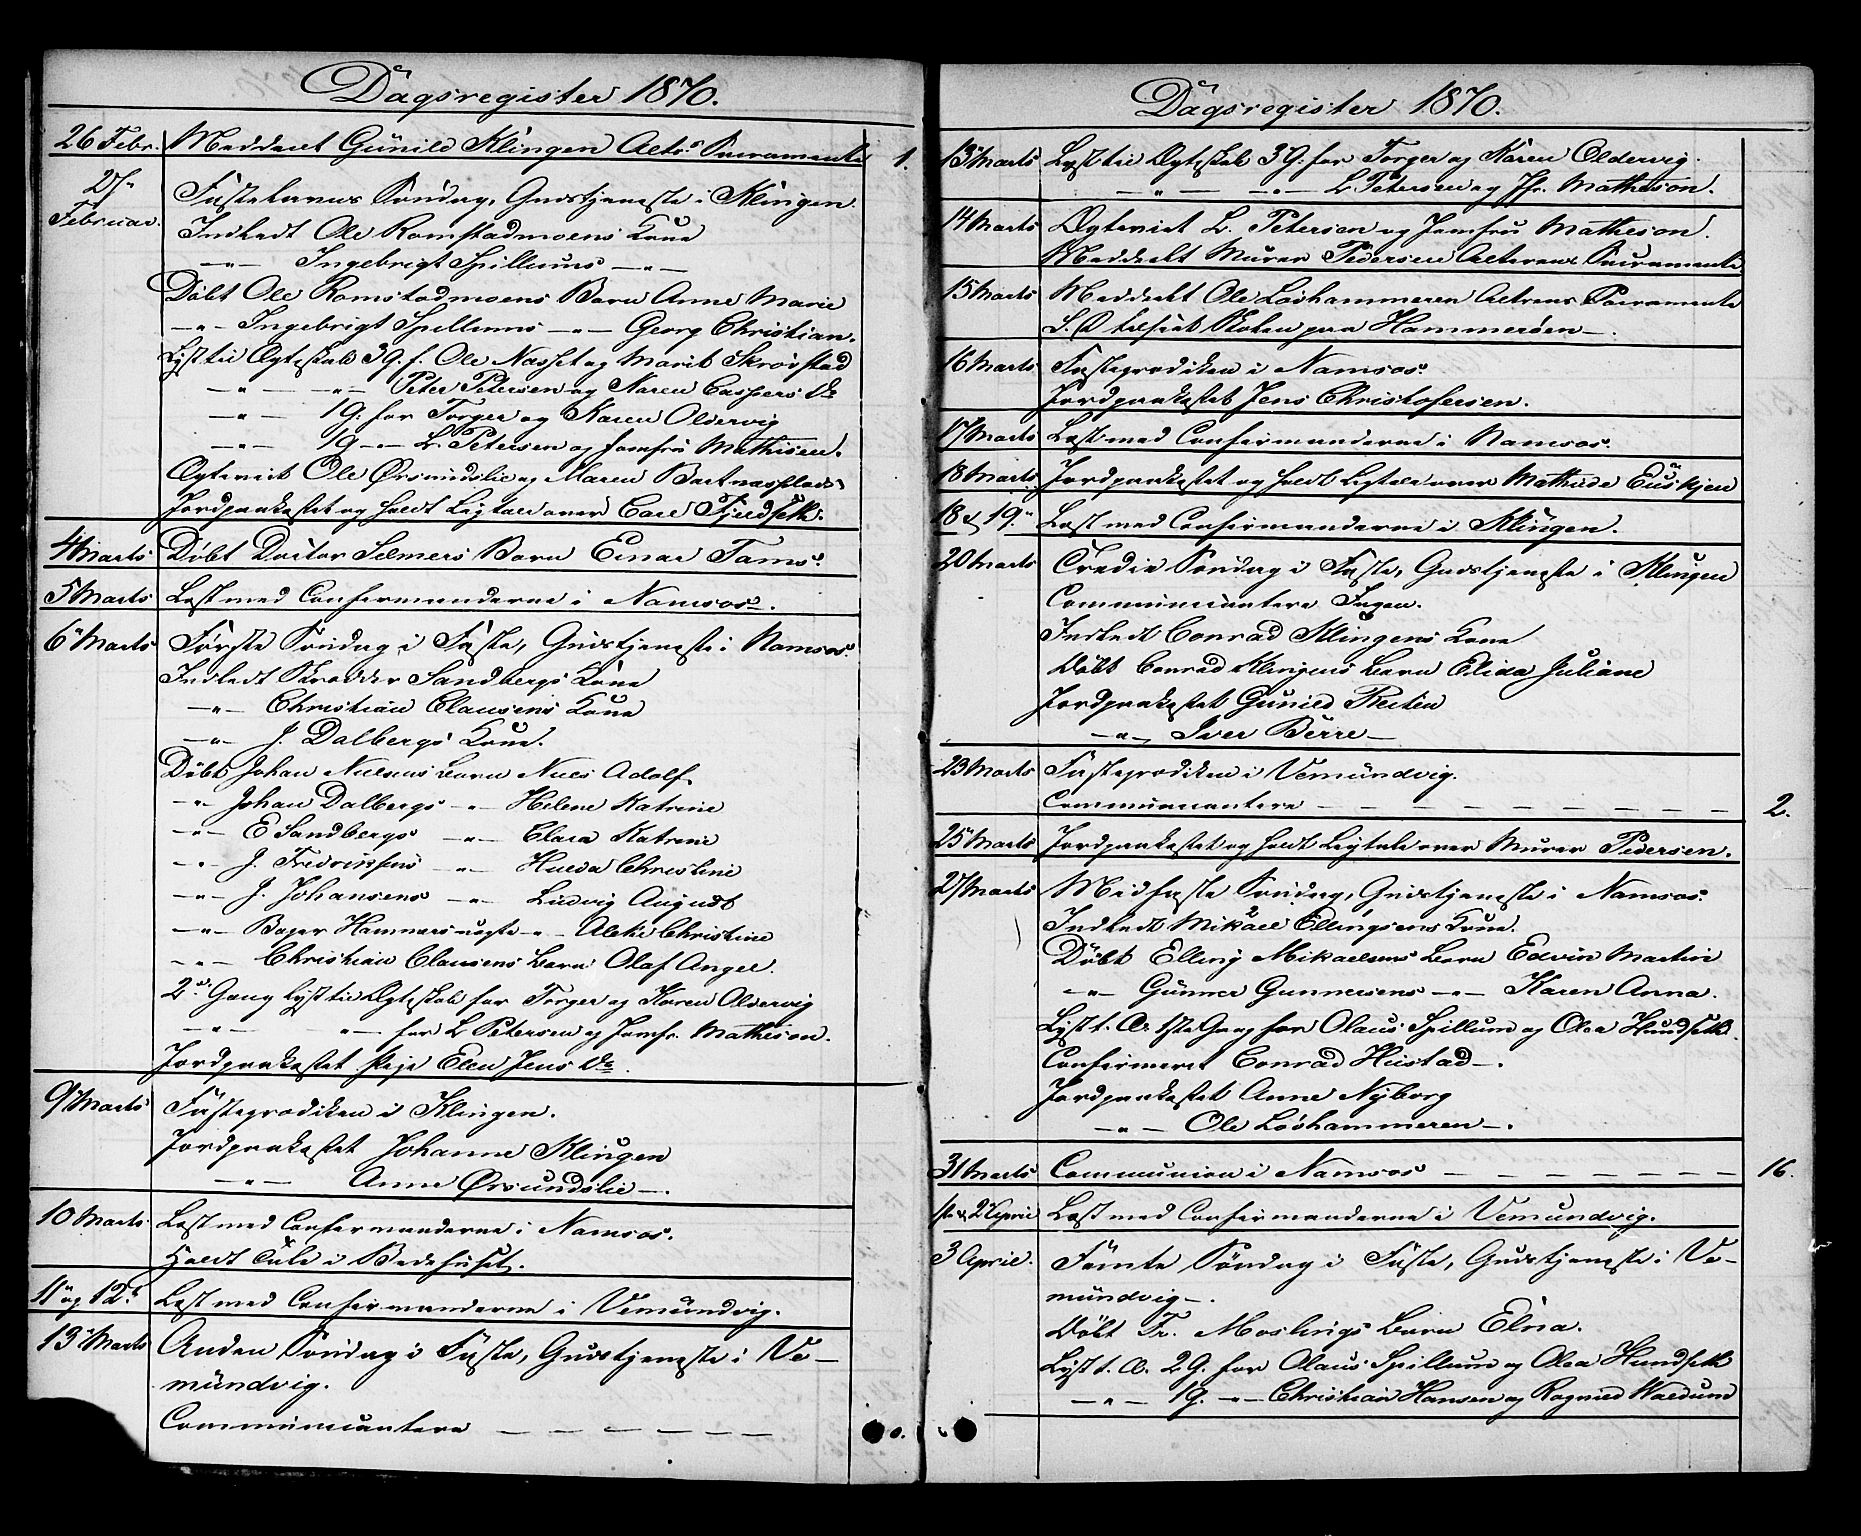 Dagsregister 1870.
26 Febr. Meddeelt Gunild Klingen Alts. Sacramente 1.
27de Februar. Fastelavns Søndag, Gudstjeneste i Klingen.
Indledt Ole Romstadmoens Kone
—„— Ingebrigt Spillums —„—
Døbt Ole Romstadmoens Barn Anne Marie
—„— Ingebrigt Spillums —„— Georg Christian.
Lyst til Ægteskab 3 G. f. Ole Nasset og Marit Skrøvstad
—„— —„— Peter Petersen og Karen Caspersdr
—„— 1 G. for Torger og Karen Oldervig
—„— 1 G —„— L. Petersen og Jomfru Mathisen.
Ægteviet Ole Ørsundslie og Maren Bartnasplads
Jordpaakastet og holdt Ligtale over Carl Fjeldseth.
4 Marts Døbt Doctor Selmers Barn Einar Tams.
5 Marts Læst med Confirmanderne i Namsos.
6 Marts Første Søndag i Faste, Gudstjeneste i Namsos.
Indledt Skrædder Sandbergs Kone
—„— Christian Clausens Kone
—„— J. Dalbergs Kone.
Døbt Johan Nielsens Barn Niels Adolf
—„— Johan Dalbergs —„— Helene Katrine
—„— E Sandbergs —„— Clara Katrine
—„— J. Fredriksens —„— Hulda Christine
—„— J. Johansens —„— Ludvig August
—„— Bager Hammers uægte —„— Aleti Christine
—„— Christian Clausens Barn Olaf Angel.
2. Gang lyst til Ægteskab for Torger og Karen Oldervig
—„— —„— for L Petersen og Jomfr. Matheson.
Jordpaakastet Pige Elen Jensdr.
9 Marts Fasteprædiken i Klingen.
Jordpaakastet Johanne Klingen
—„— Anne Ørsundslie —.
10 Marts Læst med Confirmanderne i Namsos.
Holdt Tale i Bedehuset.
11 og 12 Læst med Confirmanderne i Vemundvig.
13 Marts Anden Søndag i Faste, Gudstjeneste i Ve-
mundvig.
Communicantere — — — — — — 0.
Dagsregister 1870.
13 Marts Lyst til Ægteskab 3 G. for Torger og Karen Oldervig.
—„— —„— L. Petersen og Jfr. Matheson.
14 Marts Ægteviet L. Petersen og Jomfru Matheson.
Meddeelt Murer Pedersen Alterens Sacramente
15 Marts Meddeelt Ole Løshammeren Altrens Sacramente
S. D. tilseet Skolen paa Hammerøen —.
16 Marts Fasteprædiken i Namsos.
Jordpaakastet Jens Christofersen.
17 Marts Læst med Confirmanderne i Namsos.
18 Marts Jordpaakastet og holdt Ligtale over Mathilde Euskjen
18 & 19. Læst med Confirmanderne i Klingen.
20 Marts Tredie Søndag i Faste, Gudstjeneste i Klingen
Communicantere Ingen.
Indledt Conrad Klingens Kone
Døbt Conrad Klingens Barn Elida Juliane
Jordpaakastet Gunild Reitan
—„— Iver Børre —
23 Marts Fasteprædiken i Vemundvig.
Communicantere — — — — — — 2.
25 Marts Jordpaakastet og holdt Ligtale over Murer Pedersen.
27 Marts Midfaste Søndag, Gudstjeneste i Namsos.
Indledt Mikael Ellingsens Kone.
Døbt Elling Mikaelsens Barn Edvin Martin
—„— Gunner Gunnersens —„— Karen Anna.
Lyst t. Æ. 1ste Gang for Olaus Spillum og Olea Hundseth.
Confirmeret Conrad Hustad —.
Jordpaakastet Anne Nyborg
—„— Ole Løshammeren —.
31 Marts Communion i Namsos — — — — — 16.
1ste & 2 April Læst med Confirmanderne i Vemundvig.
3 April. Femte Søndag i Faste, Gudstjeneste i Ve-
mundvig —.
Døbt Fr. Moslings Barn Elna.
Lyst t. Æ. 2 G. for Olaus Spillum og Olea Hundseth
—„— 1 G. —„— Christian Hansen og Ragnild Walsund